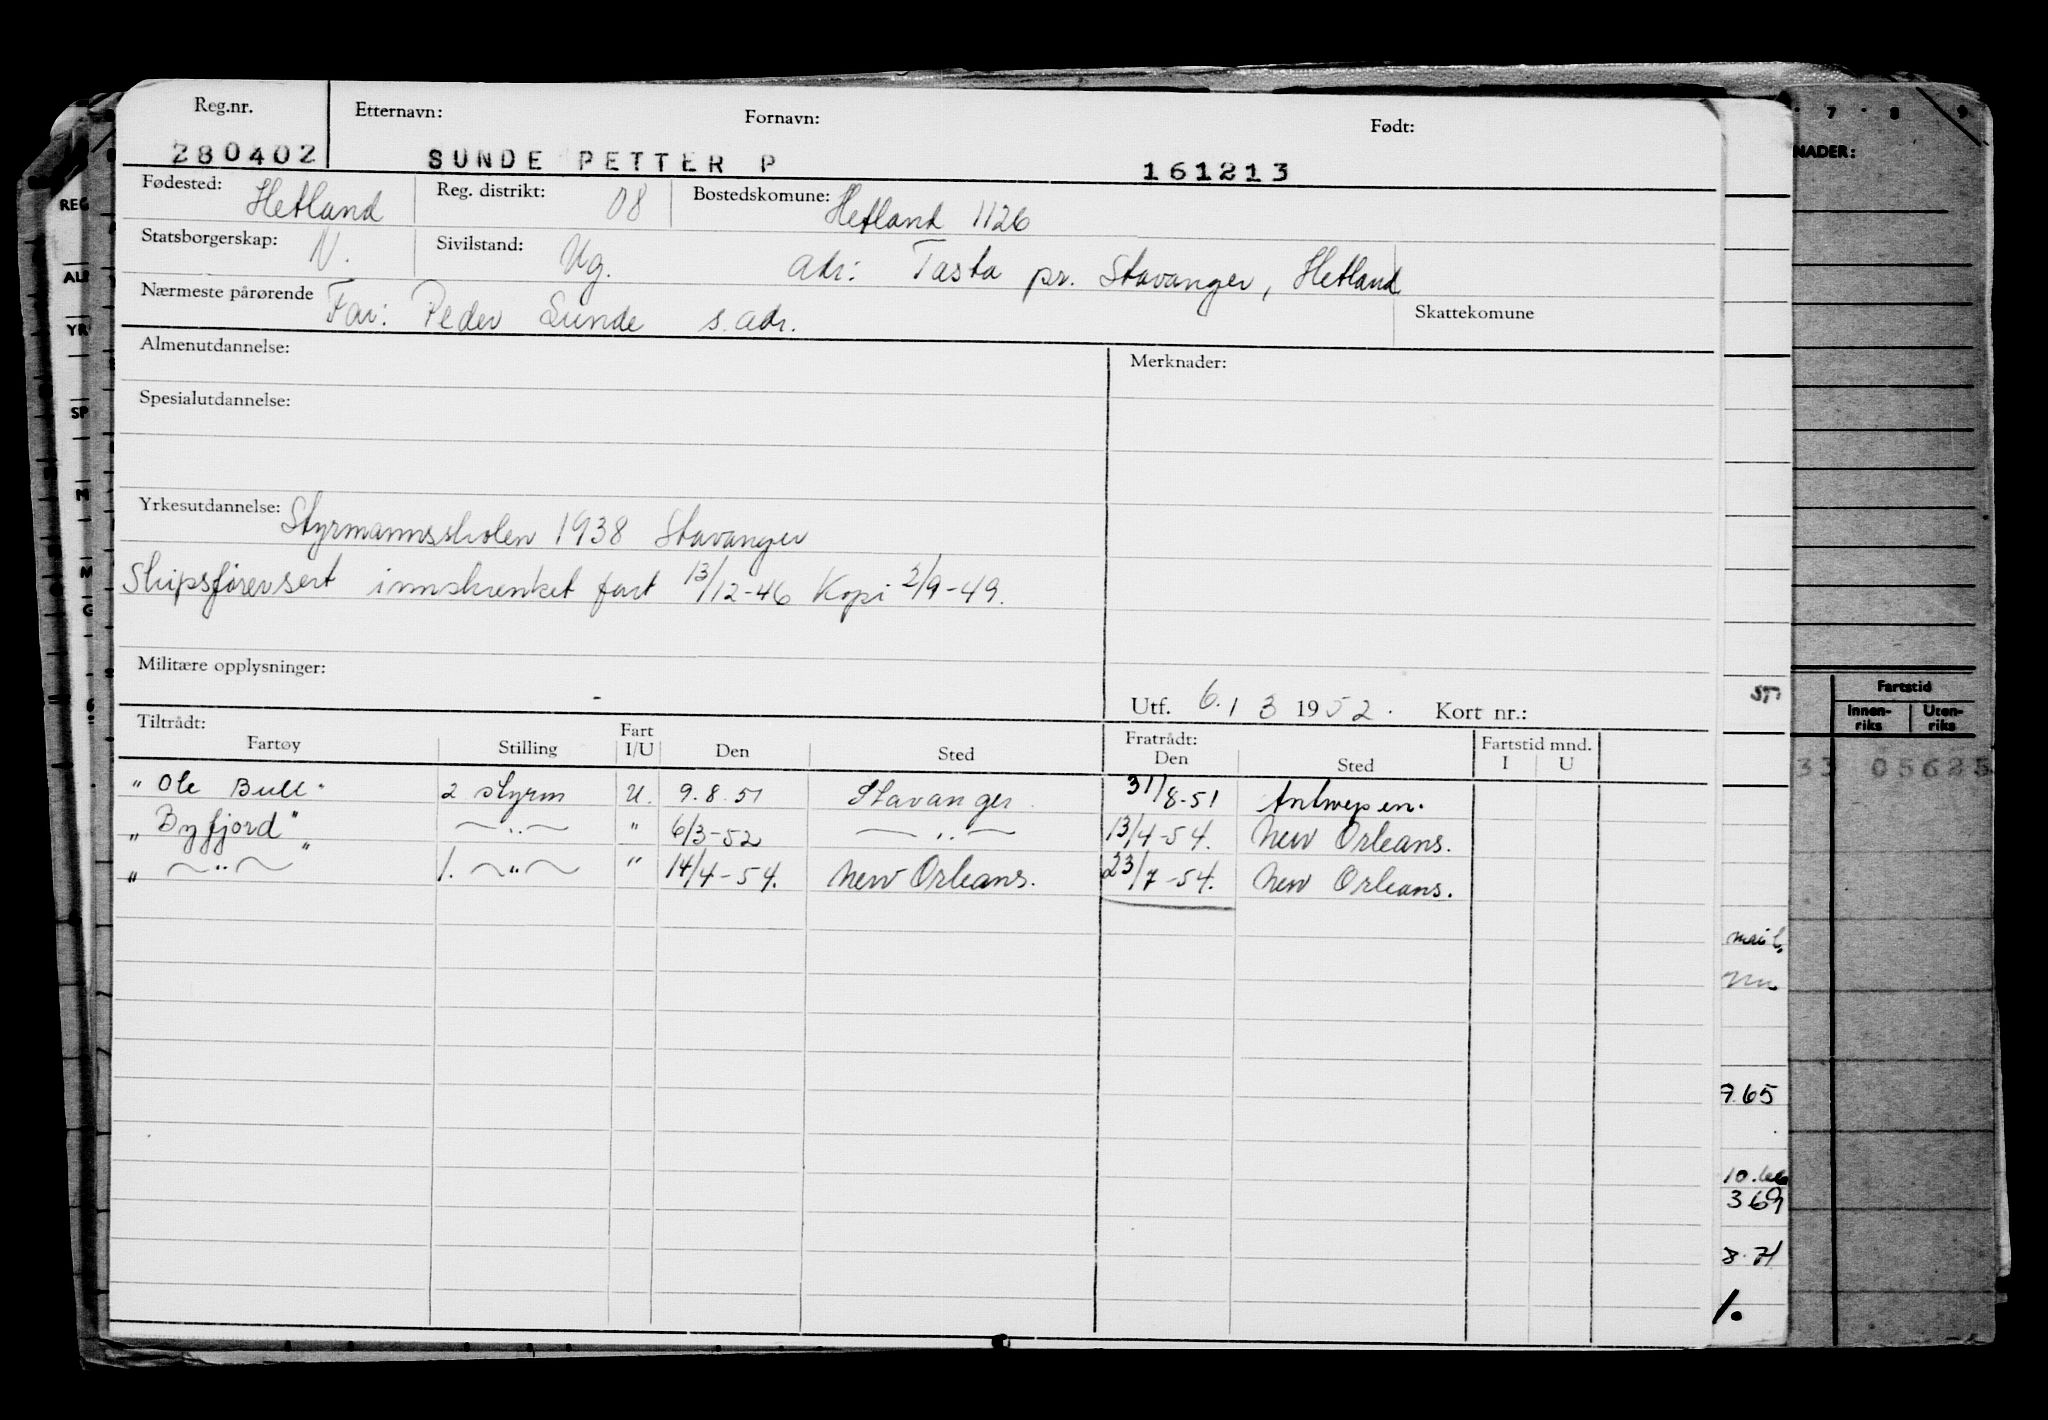 Reg.nr. Etternavn: Fornavn: Født:
280402 SUNDE PETTER P 161213
Fødested: Hetland Reg. distrikt: 08 Bostedskomune: Hetland 1126
Statsborgerskap: N. Sivilstand: Ug. adr: Tasta pr. Stavanger, Hetland
Nærmeste pårørende Far: Peder Sunde s. adr. Skattekomune
Almenutdannelse: Merknader:
Spesialutdannelse:
Yrkesutdannelse: Styrmannsskolen 1938 Stavanger
Skipsførersert innskrenket fart 13/12-46 Kopi 2/9-49.
Militære opplysninger:
Utf. 6. / 3 1952. Kort nr.:
Tiltrådt: Fratrådt:
Fartøy Stilling Fart I/U Den Sted Den Sted Fartstid mnd. I U
"Ole Bull" 2 styrm U. 9.8.51 Stavanger 31/8-51 Antwerpen.
"Byfjord" —"— " 6/3-52 —"— 13/4-54. New Orleans.
"—"—" 1. —"— " 14/4-54. New Orleans. 23/7-54. New Orleans.
REG
YR
SP
M
M
G
7 8 9
NADER:
Fartstid
Innen-riks Uten-riks
33 05625
7.65
369
8.71
1.